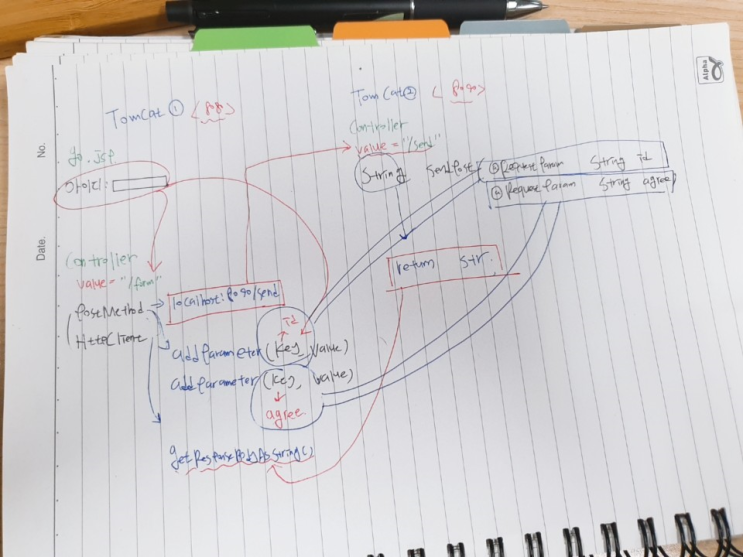 Alpha
No.
Date.
TomCat ①
TomCat ②
go.jsp
아이디:
Controller
value = "/form"
PostMethod
HttpClient
Controller
value = "/send"
String sendPost(
@RequestParam String id
@RequestParam String agree)
return str;
id
addParameter (key, value)
addParameter (key, value)
agree
getResponseBodyAsString()